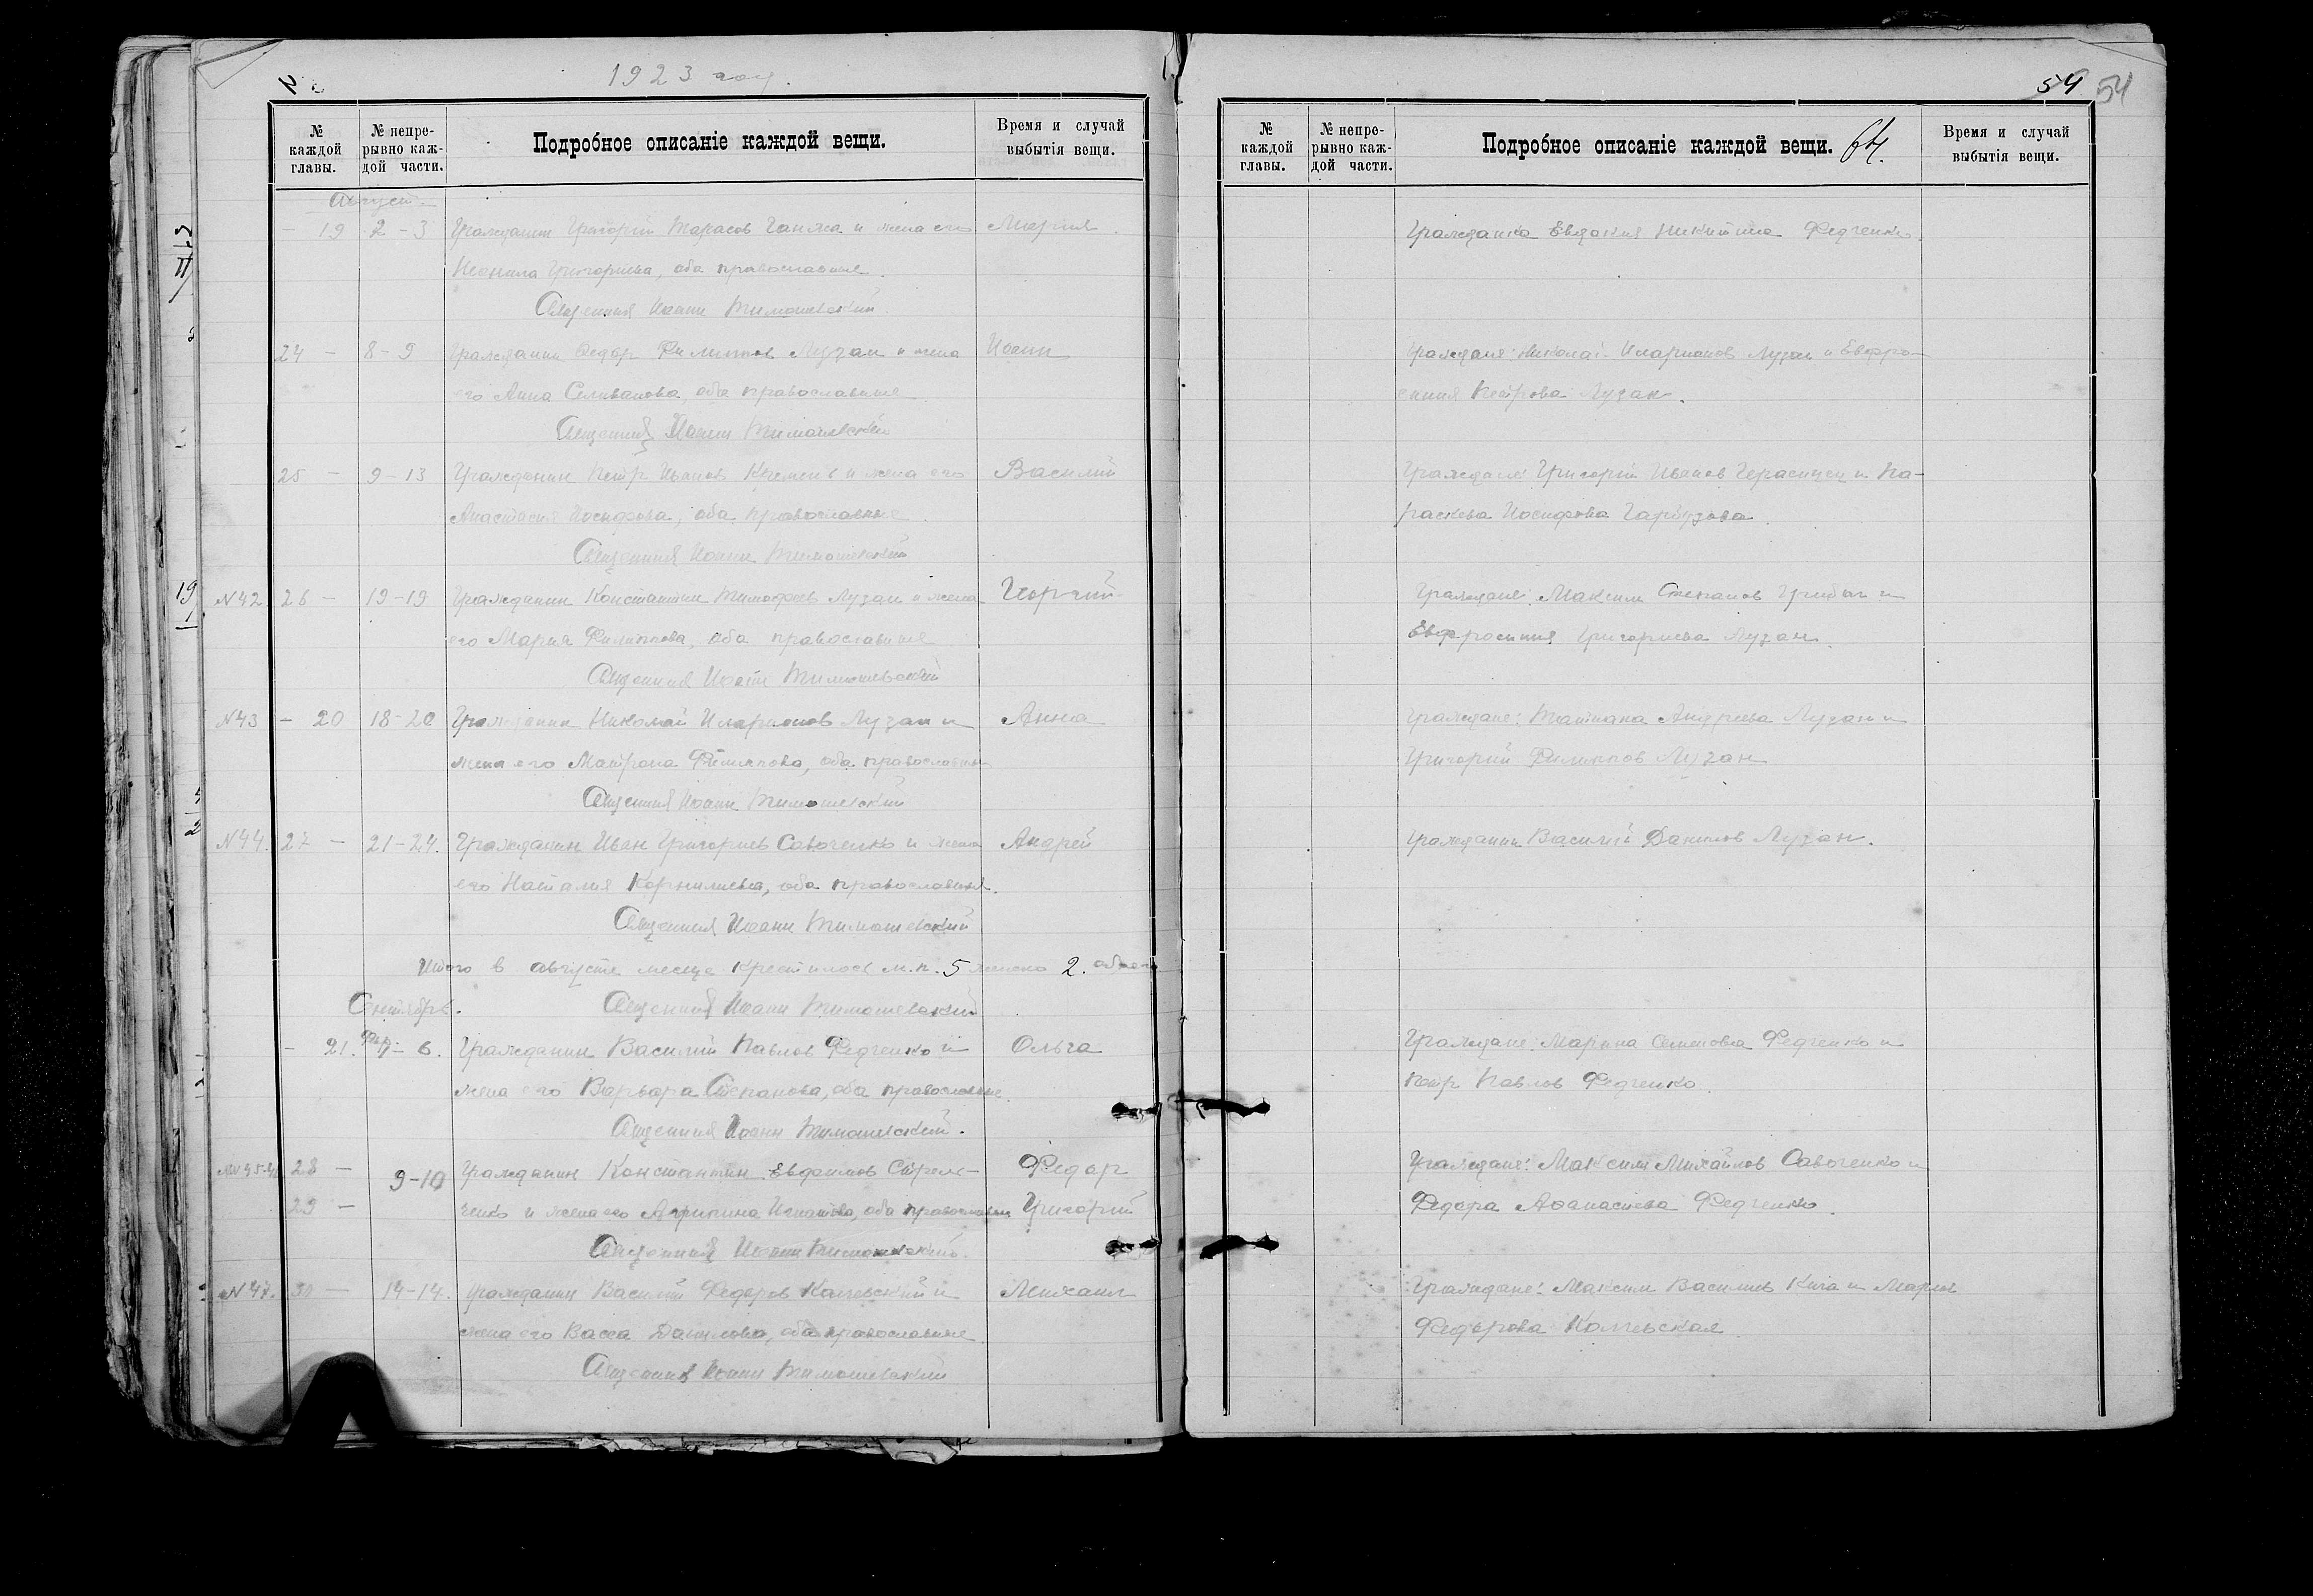 1923 год.
№ каждой главы.
№ непрерывно каждой части.
Подробное описаніе каждой вещи.
Время и случай выбытія вещи.
Август.
– 19 2–3 Гражданин Григорій Тарасов Ганжа и жена его Мария
Неонила Григориева, оба православные.
Священник Иоанн Тимошевский
24 – 8–9 Гражданин Федор Филиппов Лузан и жена Иоанн
его Анна Селиванова, оба православные
Священник Иоанн Тимошевский
25 – 9–13 Гражданин Петр Иванов Кремень и жена его Василий
Анастасия Иосифова, оба православные
Священник Иоанн Тимошевский
N42 26 – 19–19 Гражданин Константин Тимофеев Лузан и жена
его Мария Филиппова, оба православные
Священник Иоанн Тимошевский
N43 – 20 18–20 Гражданин Николай Иларионов Лузан и Анна
жена его Матрона Филиппова, оба православные
Священник Иоанн Тимошевский
N44. 27 – 21–24. Гражданин Иван Григориев Савоченко и жена Андрей
его Наталия Корнилиева, оба православные.
Священник Иоанн Тимошевский
Итого в августе месяце крестилось м.п. 5 женско 2.
Сентябрь. Священник Иоанн Тимошевский
– 21. 6. Гражданин Василий Павлов Федченко и Ольга
жена его Варвара Степанова, оба православные.
Священник Иоанн Тимошевский.
28 – 9–10 Гражданин Константин Стрель- Федор
29 – ченко и жена его Агрипина Игнатова, оба православные Григорий
Священник Иоанн Тимошевский.
N47. 30 – 14–14. Гражданин Василий Федоров и Михаил
жена его Васса Данилова, оба православные
Священник Иоанн Тимошевский
54 54
№ каждой главы.
№ непрерывно каждой части.
Подробное описаніе каждой вещи.
Время и случай выбытія вещи.
Гражданка Евдокия Никитина Федченко.
Граждане: Николай Иларионов Лузан и Евфро-
синия Петрова Лузан.
Граждане: Григорій Иванов и Па-
раскева Иосифова Гарбузова.
Граждане: Максим Степанов и
Евфросиния Григориева Лузан.
Граждане: Татиана Андреева Лузан и
Григорий Филиппов Лузан
Гражданин Василий Данилов Лузан.
Граждане: Марина Семенова Федченко и
Петр Павлов Федченко.
Граждане: Максим Михайлов Савоченко и
Федора Афанасиева Федченко.
Граждане: Максим Василиев и Мария
Федорова